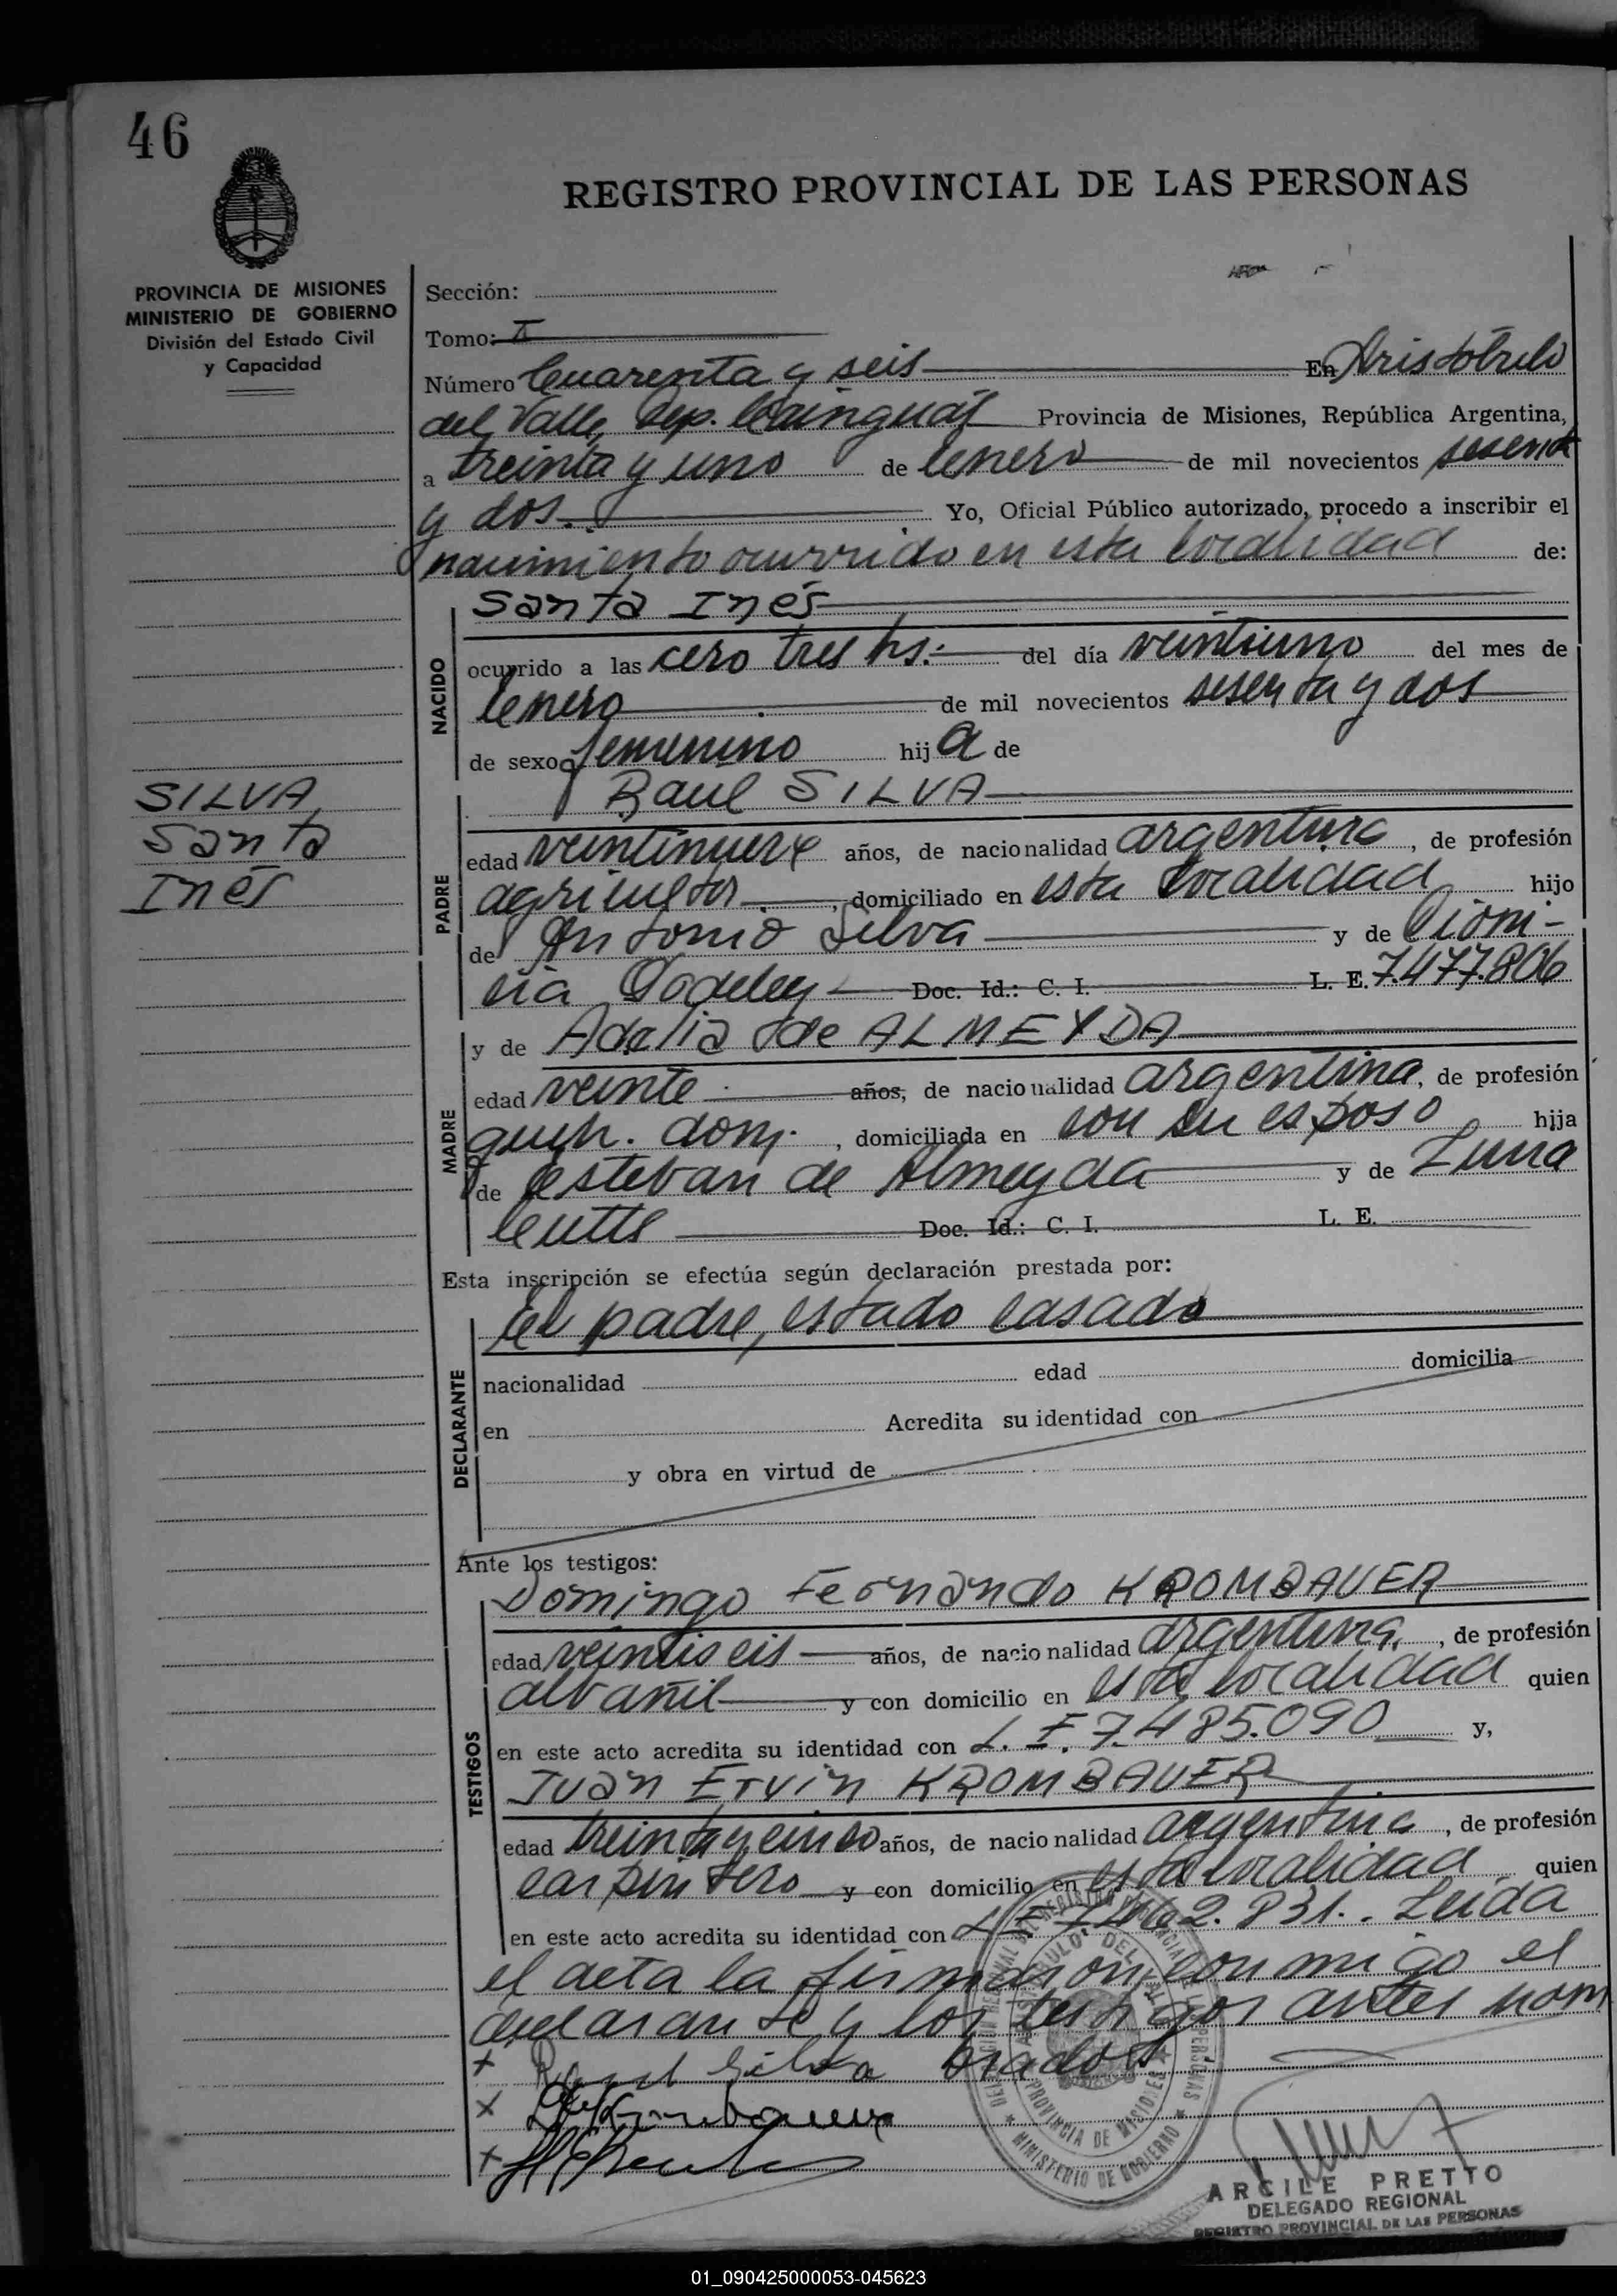 46
REGISTRO PROVINCIAL DE LAS PERSONAS
PROVINCIA DE MISIONES
MINISTERIO DE GOBIERNO
División del Estado Civil
y Capacidad
Sección:
Tomo: I
Número Cuarenta y seis En Aristóbulo
del Valle, Dep. Cainguás Provincia de Misiones, República Argentina,
a treinta y uno de Enero de mil novecientos sesenta
y dos. Yo, Oficial Público autorizado, procedo a inscribir el
nacimiento ocurrido en esta localidad de:
NACIDO
Santa Inés
ocurrido a las cero tres hs. del día veintiuno del mes de
Enero de mil novecientos sesenta y dos
de sexo femenino hija de
SILVA
Santa
Inés
PADRE
Raul SILVA
edad veintinueve años, de nacionalidad argentina, de profesión
agricultor, domiciliado en esta localidad hijo
de Antonio Silva y de
Doc. Id.: C. I. L. E. 7.477.806
MADRE
y de Adelia de ALMEYDA
edad veinte años, de nacionalidad argentina, de profesión
queh. dom., domiciliada en con su esposo hija
de Esteban de Almeyda y de
Doc. Id.: C. I. L. E.
Esta inscripción se efectúa según declaración prestada por:
DECLARANTE
El padre, estado casado
nacionalidad edad domicilia
en Acredita su identidad con
y obra en virtud de
Ante los testigos:
TESTIGOS
Domingo Fernando KROMBAUER
edad veintiseis años, de nacionalidad argentina, de profesión
albañil y con domicilio en esta localidad quien
en este acto acredita su identidad con L. E. 7.485.090 y,
Juan Ervin KROMBAUER
edad treinta y cinco años, de nacionalidad argentina, de profesión
carpintero y con domicilio en esta localidad quien
en este acto acredita su identidad con L. E. 7.462.831. Leida
el acta la firmaron conmigo el
declarante y los testigos antes nom
brados
Raul Silva
ARCILE PRETTO
DELEGADO REGIONAL
REGISTRO PROVINCIAL DE LAS PERSONAS
PROVINCIA DE MISIONES
MINISTERIO DE GOBIERNO
01_090425000053-045623